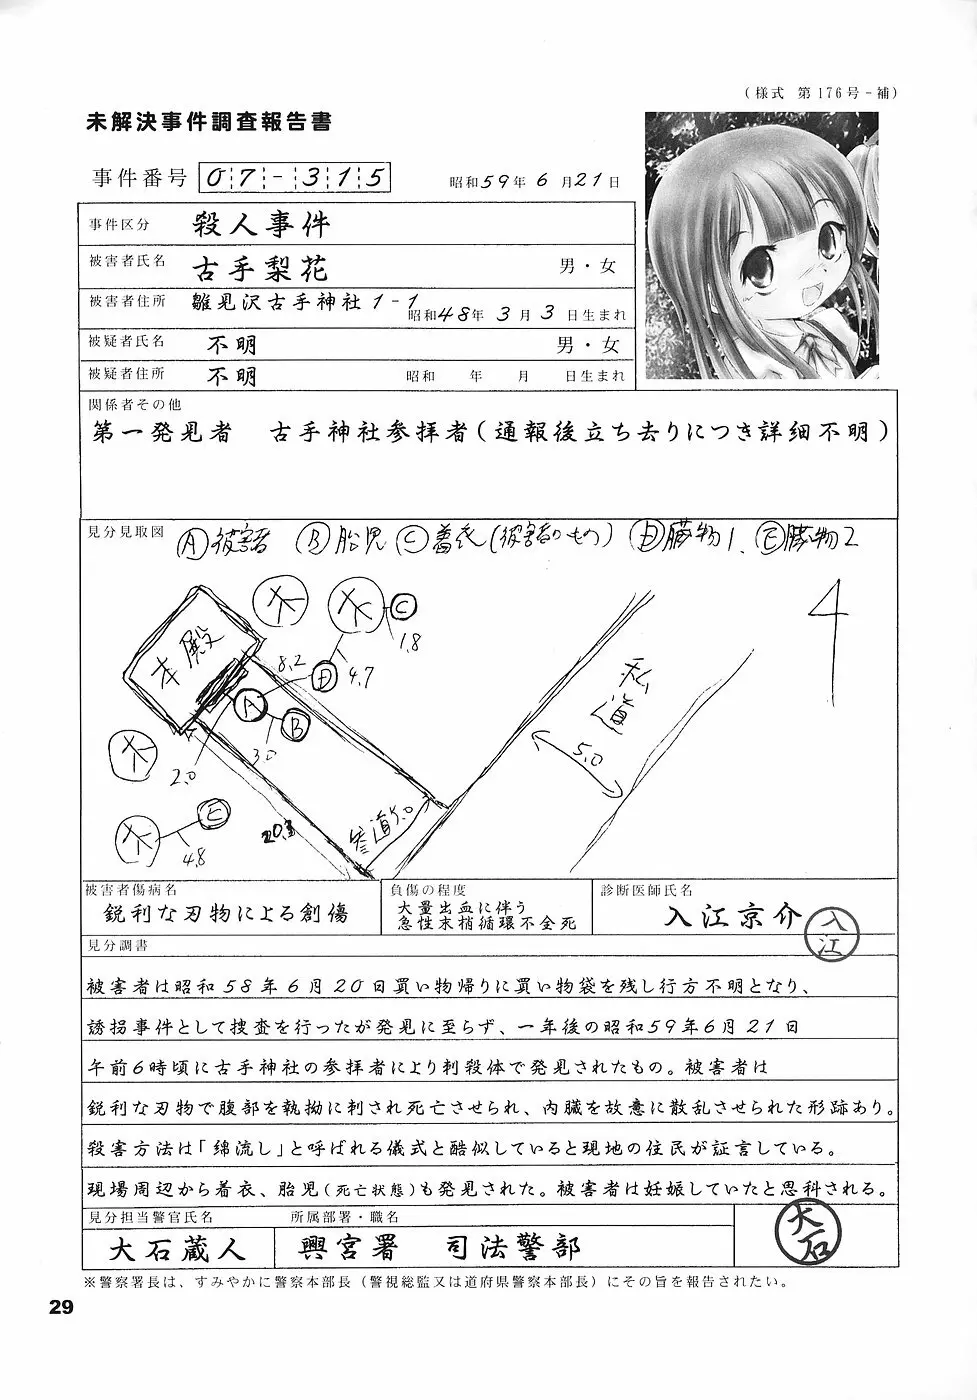 (様式 第176号-補)
未解決事件調査報告書
事件番号 07-315 昭和59年6月21日
事件区分 殺人事件
被害者氏名 古手梨花 男・女
被害者住所 雛見沢古手神社1-1 昭和48年3月3日生まれ
被疑者氏名 不明 男・女
被疑者住所 不明 昭和 年 月 日生まれ
関係者その他
第一発見者 古手神社参拝者(通報後立ち去りにつき詳細不明)
見分見取図 Ⓐ被害者 Ⓑ胎児 Ⓒ着衣(被害者のもの) Ⓓ臓物1、Ⓔ臓物2
木 木 C
1.8
本殿 8.2 D 4.7 私道
A B 5.0
木 2.0 3.0
木 E 4.8 20.3 参道5.0
4
被害者傷病名 負傷の程度 診断医師氏名
鋭利な刃物による創傷 大量出血に伴う
急性末梢循環不全死 入江京介 入江
見分調書
被害者は昭和58年6月20日買い物帰りに買い物袋を残し行方不明となり、
誘拐事件として捜査を行ったが発見に至らず、一年後の昭和59年6月21日
午前6時頃に古手神社の参拝者により刺殺体で発見されたもの。被害者は
鋭利な刃物で腹部を執拗に刺され死亡させられ、内臓を故意に散乱させられた形跡あり。
殺害方法は「綿流し」と呼ばれる儀式と酷似していると現地の住民が証言している。
現場周辺から着衣、胎児(死亡状態)も発見された。被害者は妊娠していたと思科される。
見分担当警官氏名 所属部署・職名
大石蔵人 興宮署 司法警部 大石
※警察署長は、すみやかに警察本部長(警視総監又は道府県警察本部長)にその旨を報告されたい。
29